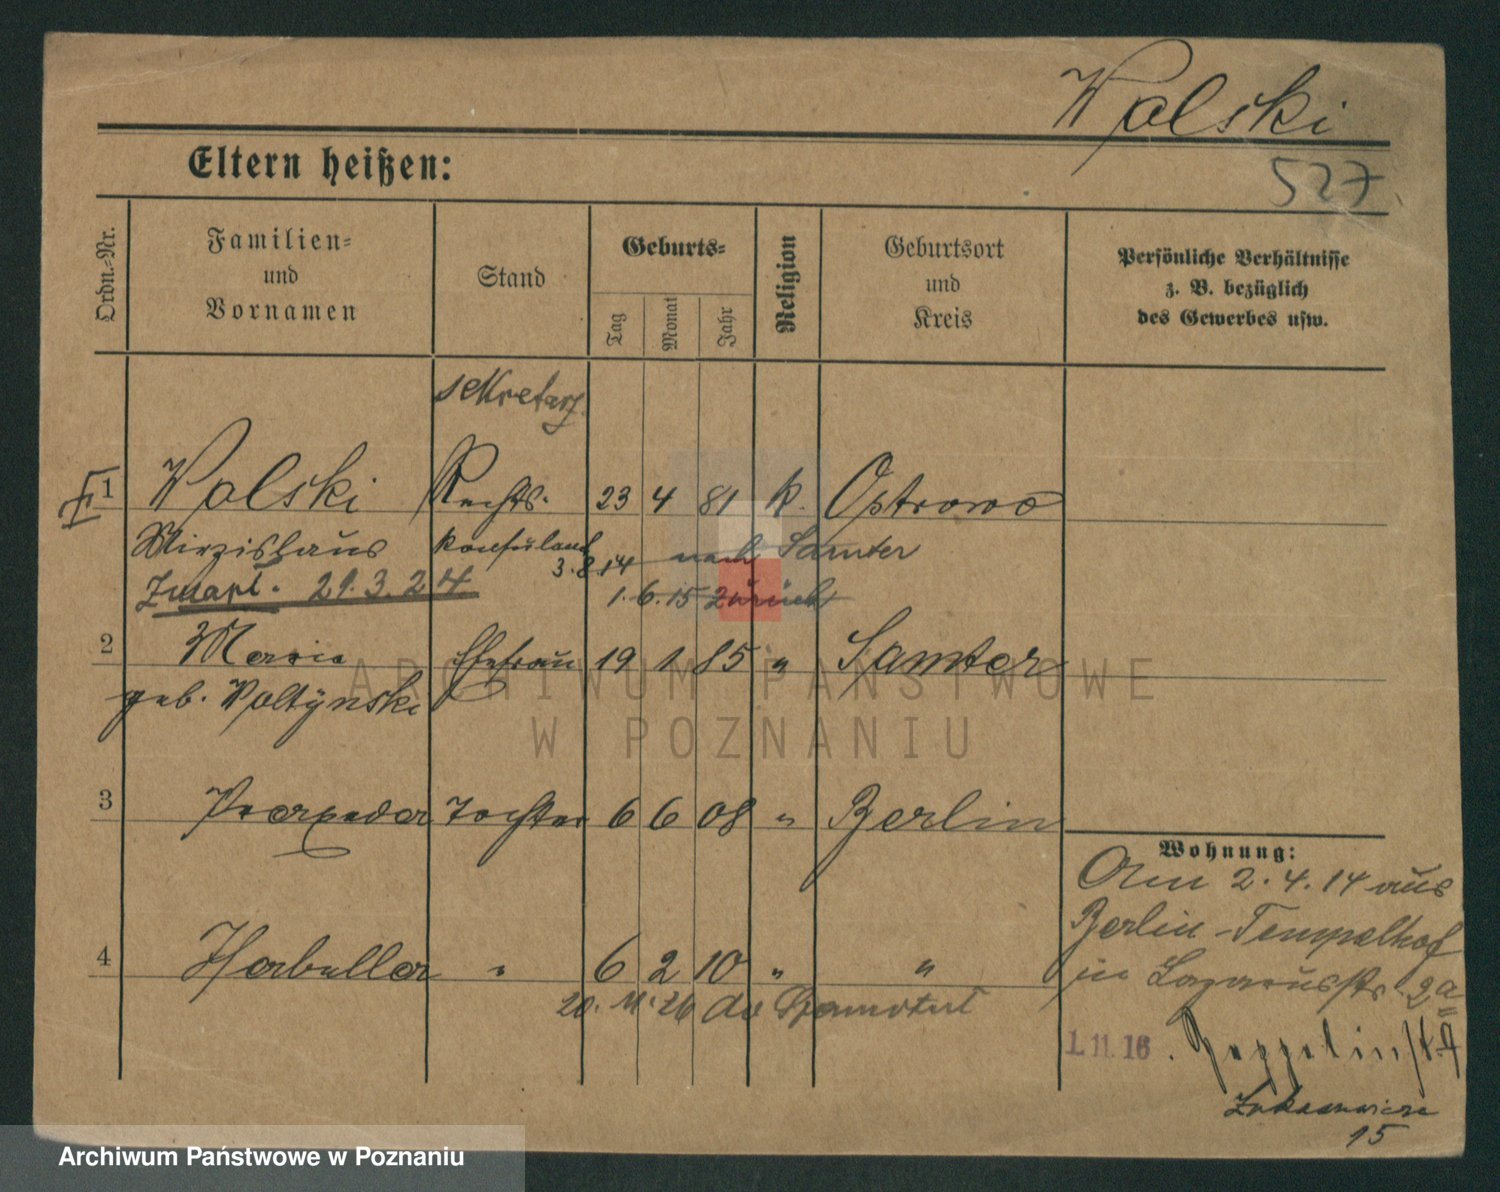 Walski
527
Eltern heißen:
Ordn.-Nr.
Familien=
und
Vornamen
Stand
Geburts=
Tag
Monat
Jahr
Religion
Geburtsort
und
Kreis
Persönliche Verhältnisse
z. B. bezüglich
des Gewerbes usw.
sekretarz
1 Walski Rechts- 23 4 81 k. Ostrowo
konsulent
3.8.14 nach Samter
Zmarł. 29.3.24
1.6.15 Zürich
2 Maria Ehefrau 19 1 85 " Samter
geb. Woltynski
3 Tochter 6 6 08 " Berlin
Wohnung:
Am 2.4.14 aus
Berlin-Tempelhof
in Lazarusstr. 2a
4 " 6 2 10 " "
20. 11. 26
1.11.16. Zeppelinstr.
15
ARCHIWUM PAŃSTWOWE
W POZNANIU
Archiwum Państwowe w Poznaniu